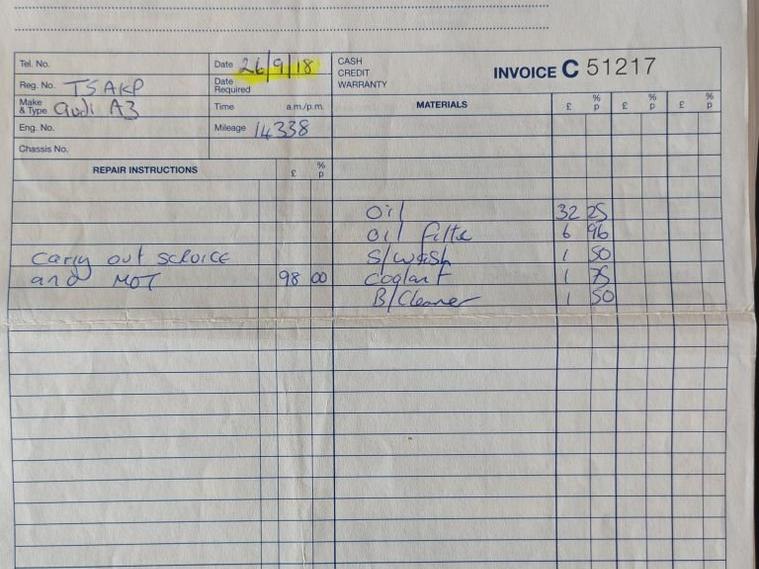 Tel. No.
Date 26/9/18
CASH
CREDIT
WARRANTY
INVOICE C 51217
Reg. No. TSAKP
Date Required
Make & Type Audi A3
Time a.m./p.m.
MATERIALS £ % p £ % p £ % p
Eng. No.
Mileage 14338
Chassis No.
REPAIR INSTRUCTIONS £ % p
Oil 32 25
Oil filte 6 96
Carry out service
S/wash 1 50
and MOT 98 00
Coolant 1 75
B/Cleaner 1 50